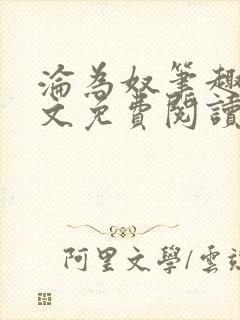 淪為奴筆趣
文免費閱讀
阿里文學/雲